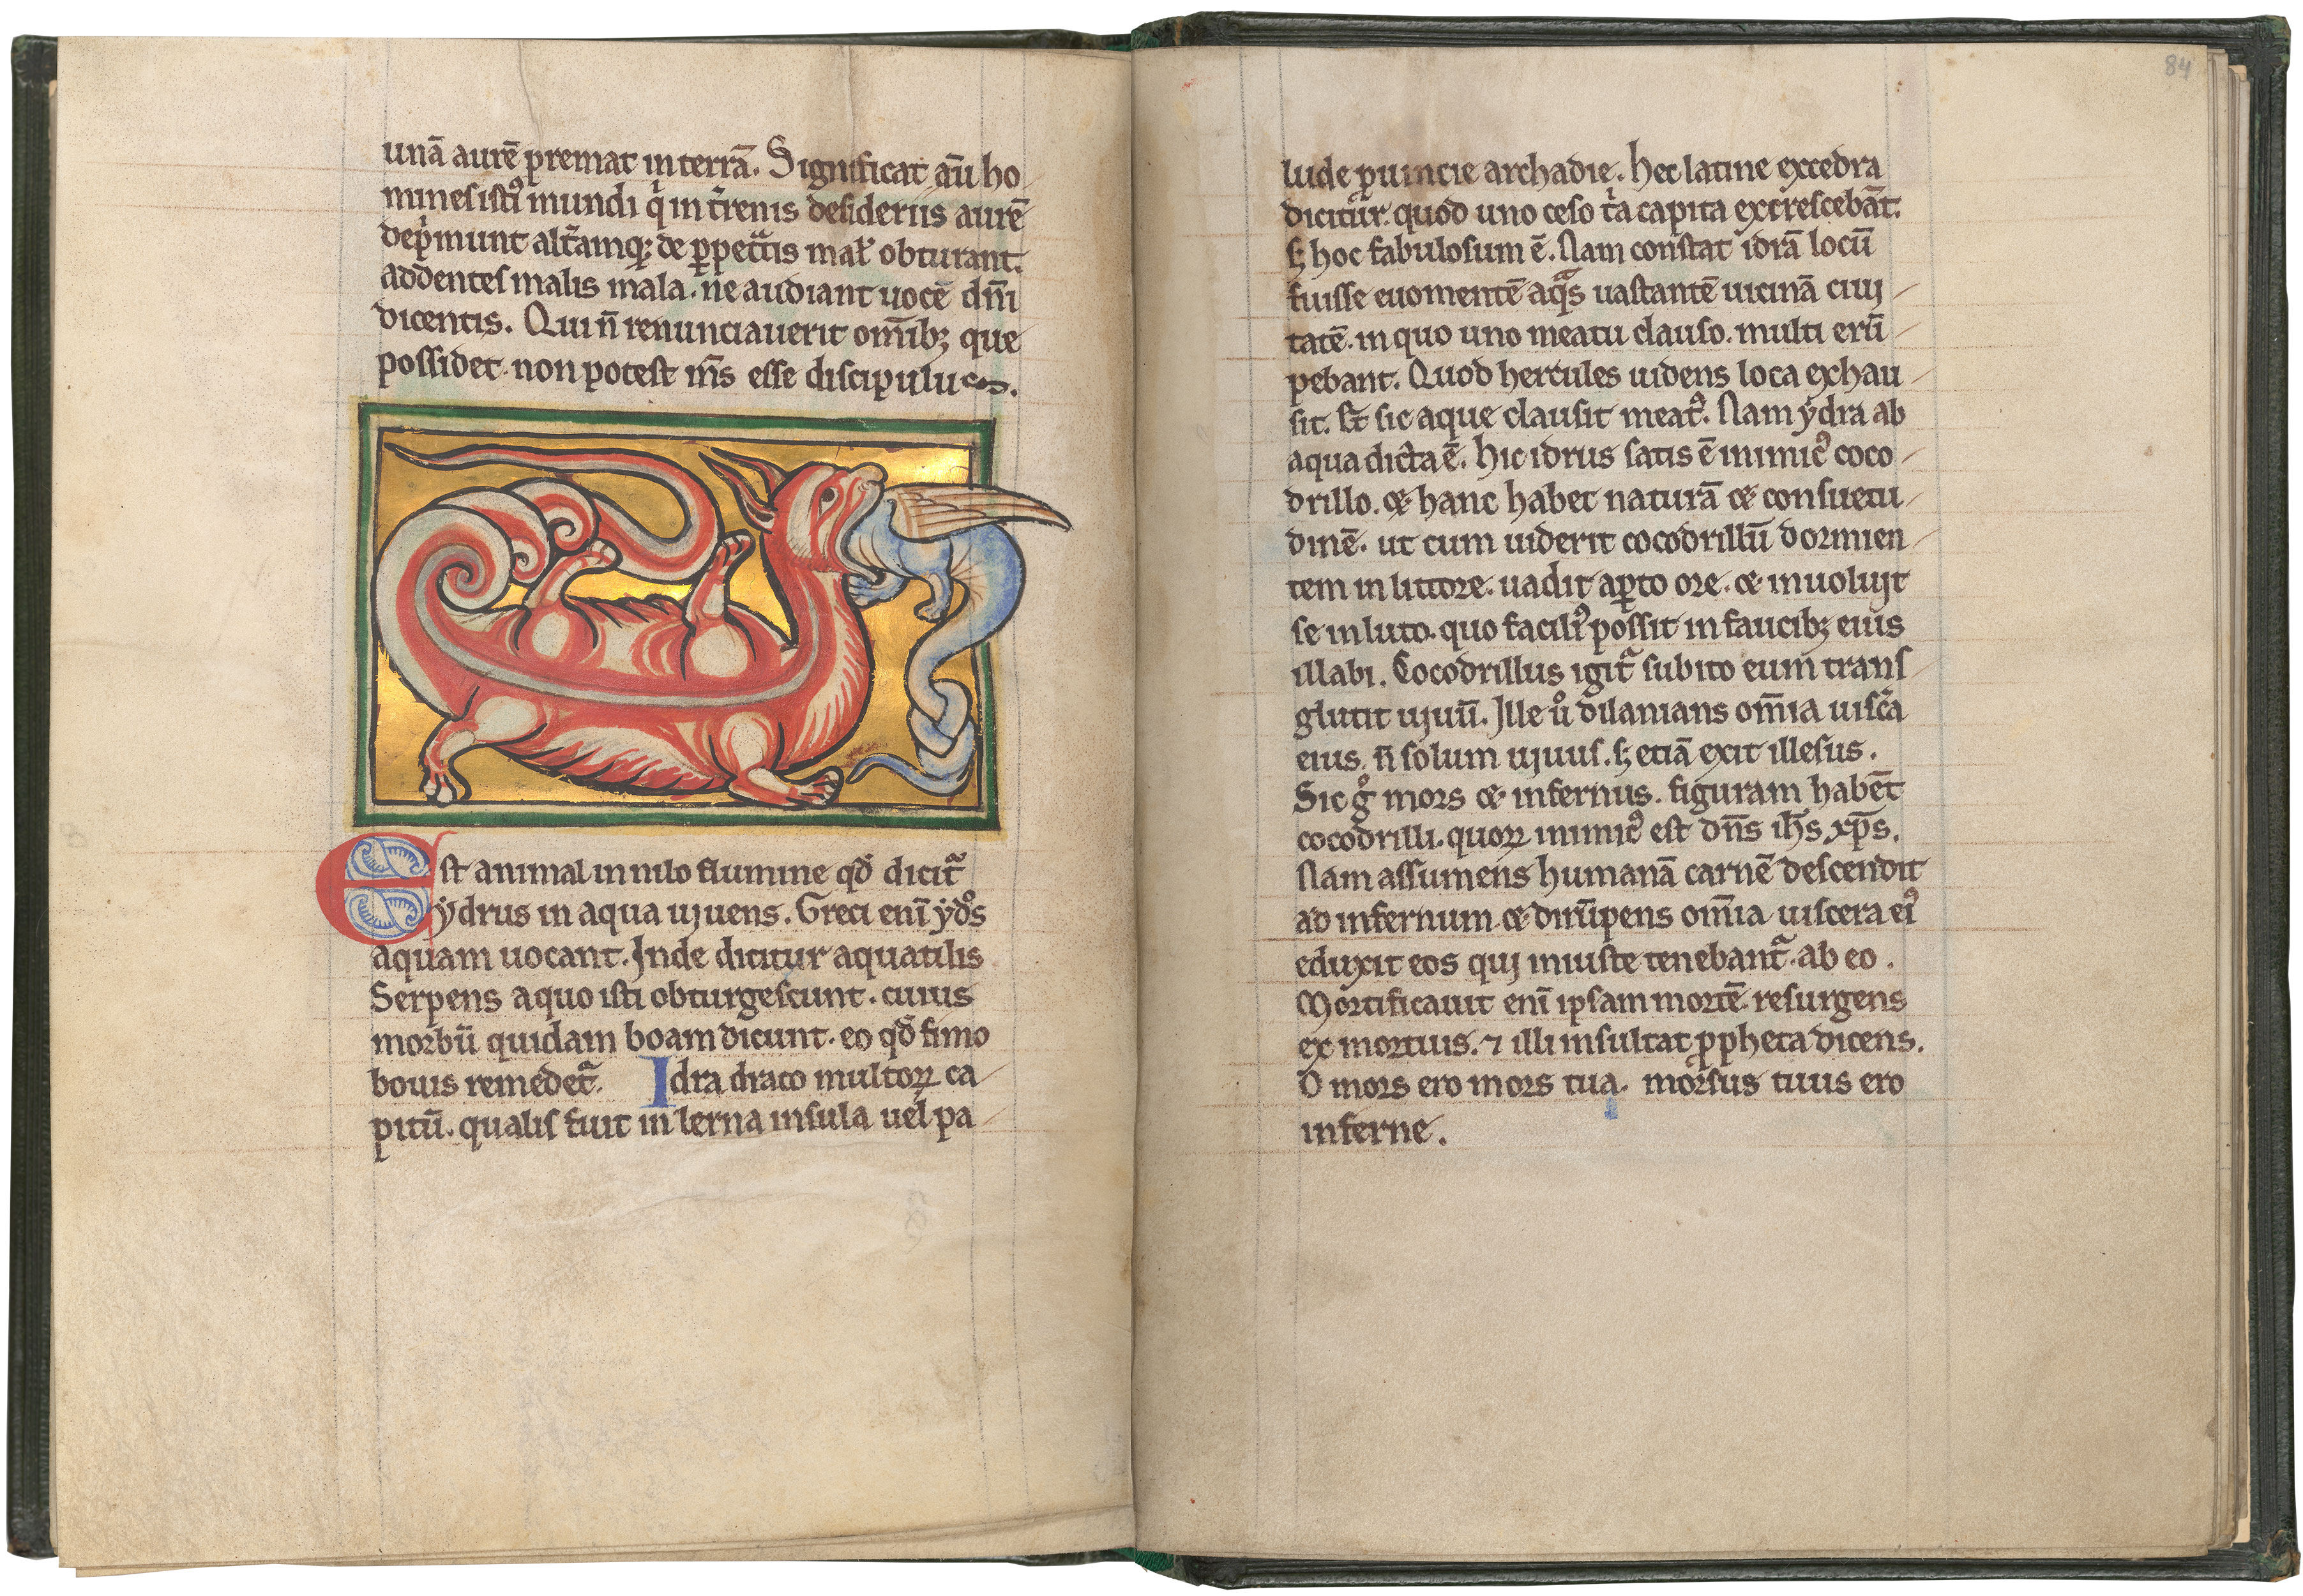 unā aurē premat in terrā. Significat aū ho
mines istiꝰ mundi qͥ in t̄renis desideriis aurē
depͥmunt alt̄amqꝫ de ꝑpetᷓtis mal̕ obturant.
addentes malis mala. ne audiant uocē dn̄i
dicentis. Qui n̄ renunciauerit om̄ibꝫ que
possidet. non potest m̄s esse discipulus.
Est animal in nilo flumine qđ dicit᷑
ẏdrus in aqua uiuens. Greci enī ẏdͦs
aquam uocant. Inde dicitur aquatilis
Serpens a quo isti obturgescunt. cuius
morbū quidam boam dicunt. eo qđ fimo
bouis remedet᷑. Idra draco multoꝝ ca
pitū. qualis fuit in lerna insula uel pa
lude ꝓuincie archadie. hec latine excedra
dicitur. quod uno ceso tͥa capita excrescebāt.
sꝫ hoc fabulosum ē. Nam constat idrā locū
fuisse euomentē aqᷓs uastantē uicinā ciui
tatē. in quo uno meatu clauso. multi erū
pebant. Quod hercules uidens loca exhau
sit. et sic aque clausit meatꝰ. Nam ẏdra ab
aqua dicta ē. hic idrus satis ē inimicꝰ coco
drillo. et hanc habet naturā et consuetu
dinē. ut cum uiderit cocodrillū dormien
tem in littore. uadit aꝑto ore. et inuoluit
se in luto. quo faciliꝰ possit in faucibꝫ eius
illabi. Cocodrillus igit᷑ subito eum trans
glutit uiuū. Ille uͦ dilanians om̄ia uisc̄a
eius. n̄ solum uiuus. sꝫ etiā exit illesus.
Sic gͦ mors et infernus. figuram habēt
cocodrilli. quoꝝ inimicꝰ est dn̄s ih̄s xp̄s.
Nam assumens humanā carnē descendit
ad infernum et dirūpens om̄ia uiscera eiꝰ
eduxit eos qui iniuste tenebant᷑ ab eo.
Mortificauit enī ipsam mortē resurgens
ex mortuis. ⁊ illi insultat ꝓpheta dicens.
O mors ero mors tua. morsus tuus ero
inferne.
84